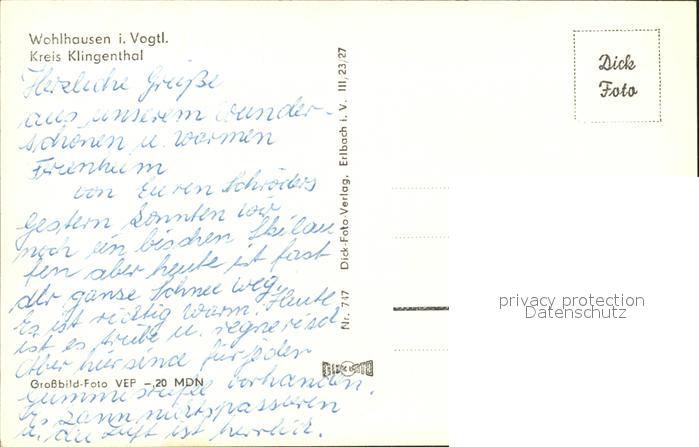 Wohlhausen i. Vogtl.
Kreis Klingenthal
Herzliche Grüße
aus unserem wunder-
schönen u. warmen
Ferienheim
von Euren Schröders
Gestern konnten wir
noch ein bischen Skilau
fen aber heute ist fast
der ganse Schnee weg.
Es ist richtig warm. Heute
ist es trübe u. regnerisch
Aber hier sind für jeden
Gummistiefel vorhanden.
Es kann nichts passieren
u. die Luft ist herrlich.
Großbild-Foto VEP –,20 MDN
Nr. 747 Dick-Foto-Verlag, Erlbach i. V. III/23/27
Dick
Foto
privacy protection
Datenschutz